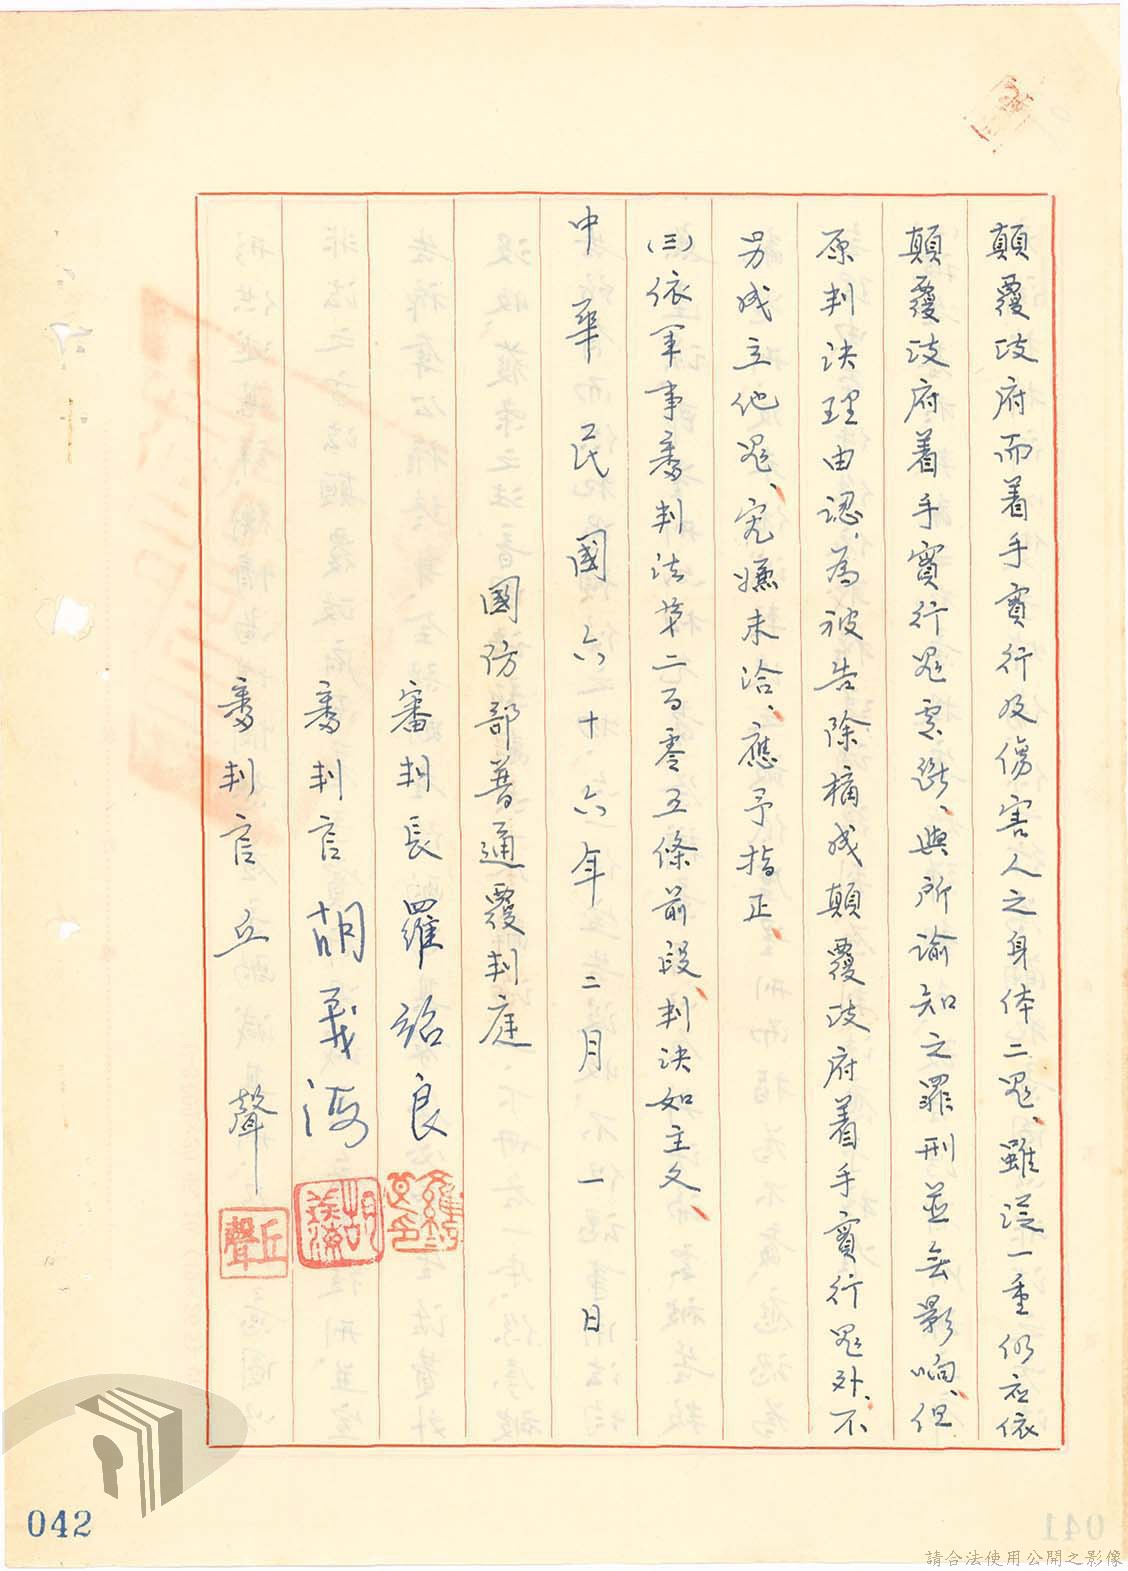 顛覆政府而着手實行及傷害人之身体二罪、雖從一重仍应依
顛覆政府着手實行罪處斷、與所諭知之罪刑並無影响、但
原判決理由認、為被告除構成顛覆政府着手實行罪外、不
另成立他罪、究嫌未洽、應予指正、
㈢依軍事審判法第二百零五條前段、判決如主文、
中華民國六十六年二月一日
國防部普通覆判庭
審判長羅紹良
審判官胡義海
審判官丘聲
丘聲
042
請合法使用公開之影像